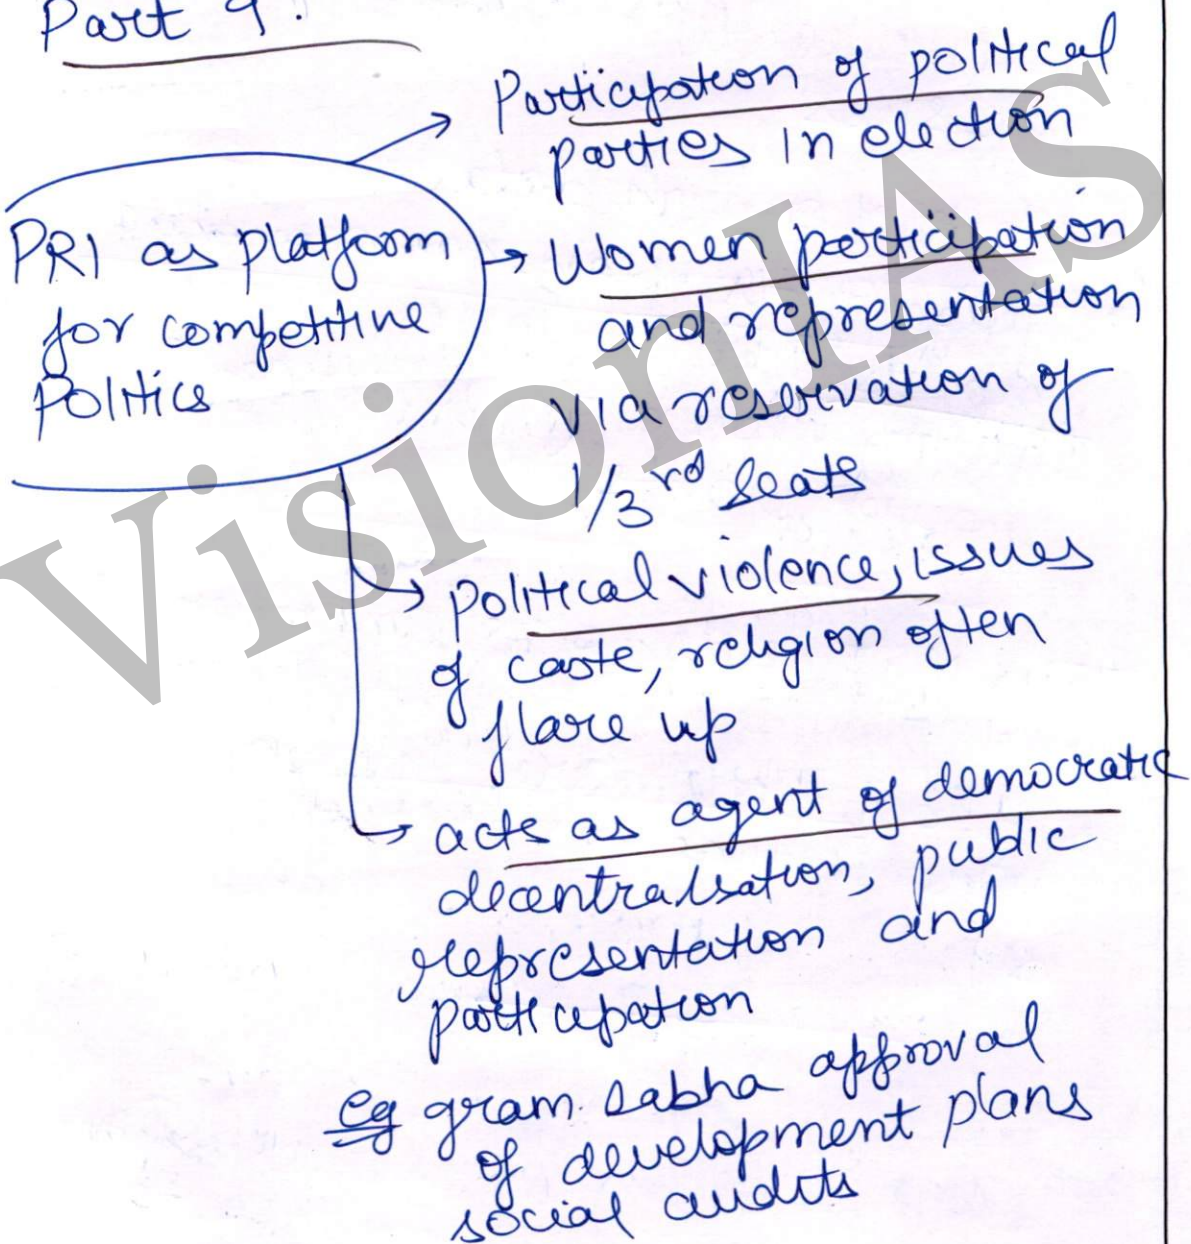 Part 9.
PRI as platform
for competitive
Politics
Participation of political
parties in election
Women participation
and representation
via reservation of
1/3rd seats
political violence, issues
of caste, religion often
flare up
acts as agent of democratic
decentralisation, public
representation and
participation
eg gram sabha approval
of development plans
social audits
VisionIAS